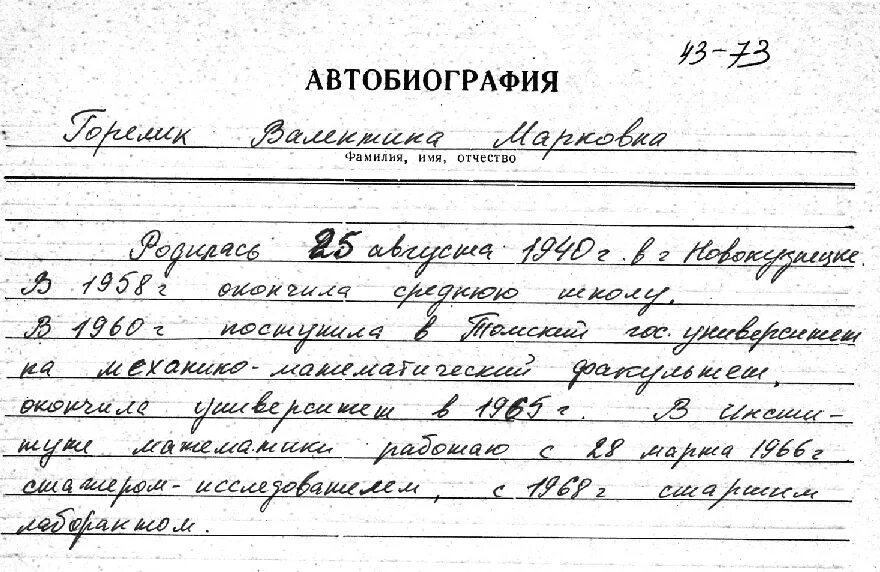 43-73
АВТОБИОГРАФИЯ
Горелик Валентина Марковна
Фамилия, имя, отчество
Родилась 25 августа 1940 г. в г Новокузнецке.
В 1958 г окончила среднюю школу.
В 1960 г поступила в Томский гос. университет
на механико-математический факультет,
окончила университет в 1965 г. В Инсти-
туте математики работаю с 28 марта 1966 г
стажером-исследователем, с 1968 г старшим
лаборантом.